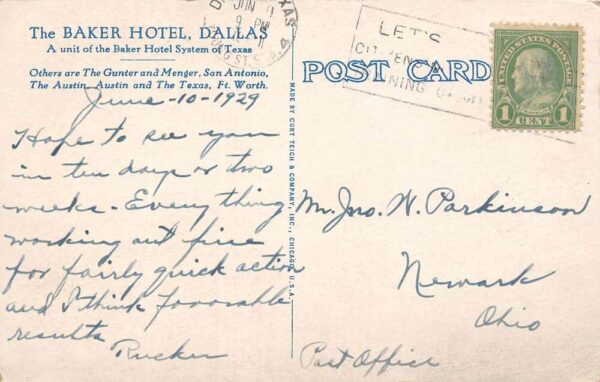 The BAKER HOTEL, DALLAS
A unit of the Baker Hotel System of Texas
Others are The Gunter and Menger, San Antonio,
The Austin, Austin and The Texas, Ft. Worth.
June-10-1929
Hope to see you
in ten days or two
weeks. Everything
working out fine
for fairly quick action
and I think favorable
results
Rucker
MADE BY CURT TEICH & COMPANY, INC., CHICAGO, U.S.A.
JUN
9 PM
LET'S
POST CARD
UNITED STATES POSTAGE
FRANKLIN
1 CENT 1
Mr. Jno. W. Parkinson
Newark
Ohio
Post Office